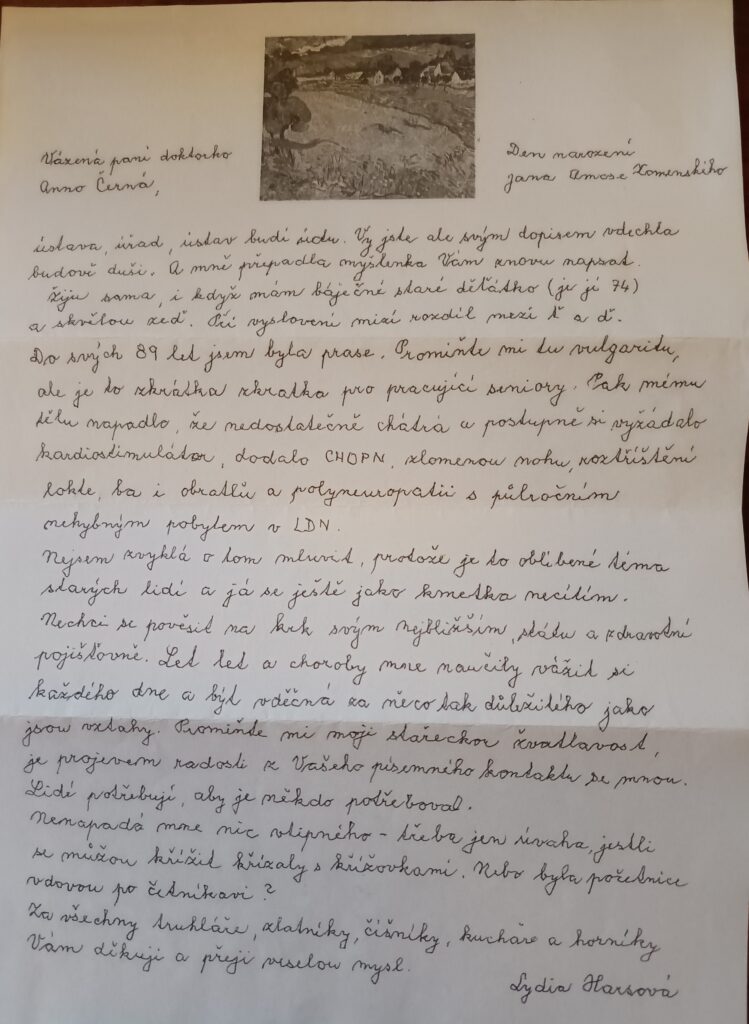 Vázená paní doktorko
Anno Černá,
Den narození
Jana Amose Komenského
ústava, úřad, ústav budí úctu. Vy jste ale svým dopisem vdechla
budově duši. A mně přepadla myšlenka Vám znovu napsat.
Žiju sama, i když mám báječné staré děťátko (je jí 74)
a skvělou zeď. Při vyslovení mizí rozdíl mezi ť a ď.
Do svých 89 let jsem byla prase. Promiňte mi tu vulgaritu,
ale je to zkrátka zkratka pro pracující seniory. Pak mému
tělu napadlo, že nedostatečně chátrá a postupně si vyžádalo
kardiostimulátor, dodalo CHOPN, zlomenou nohu, roztříštění
lokte, ba i obratlů a polyneuropatii s půlročním
nehybným pobytem v LDN.
Nejsem zvyklá o tom mluvit, protože je to oblíbené téma
starých lidí a já se ještě jako kmetka necítím.
Nechci se pověsit na krk svým nejbližším, státu a zdravotní
pojišťovně. Let let a choroby mne naučily vážit si
každého dne a být vděčná za něco tak důležitého jako
jsou vztahy. Promiňte mi moji stařeckou žvatlavost,
je projevem radosti z Vašeho písemného kontaktu se mnou.
Lidé potřebují, aby je někdo potřeboval.
Nenapadá mne nic vtipného – třeba jen úvaha, jestli
se můžou křížit křížaly s křížovkami. Nebo byla požetnice
vdovou po četníkavi?
Za všechny truhláře, zlatníky, číšníky, kuchaře a horníky
Vám děkuji a přeji veselou mysl.
Lydia Harsová